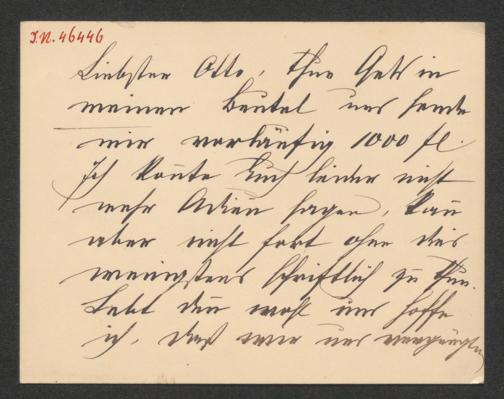 I.N. 46446
Liebster Otto, thue Geld in
meinen Beutel und sende
mir vorläufig 1000 fl.
Ich konnte Euch leider nicht
mehr Adieu sagen, kann
aber nicht fort ohne dies
wenigstens schriftlich zu thun.
Lebt den wohl und hoffe
ich, daß wir uns vergnügt